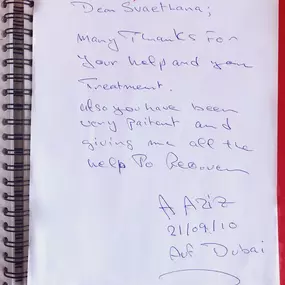 Dear Svaethana;
Many Thanks For
your help and your
Treatment.
Also you have been
very paitent and
giving me all the
help To Recover
A AZIZ
21/09/10
Dubai